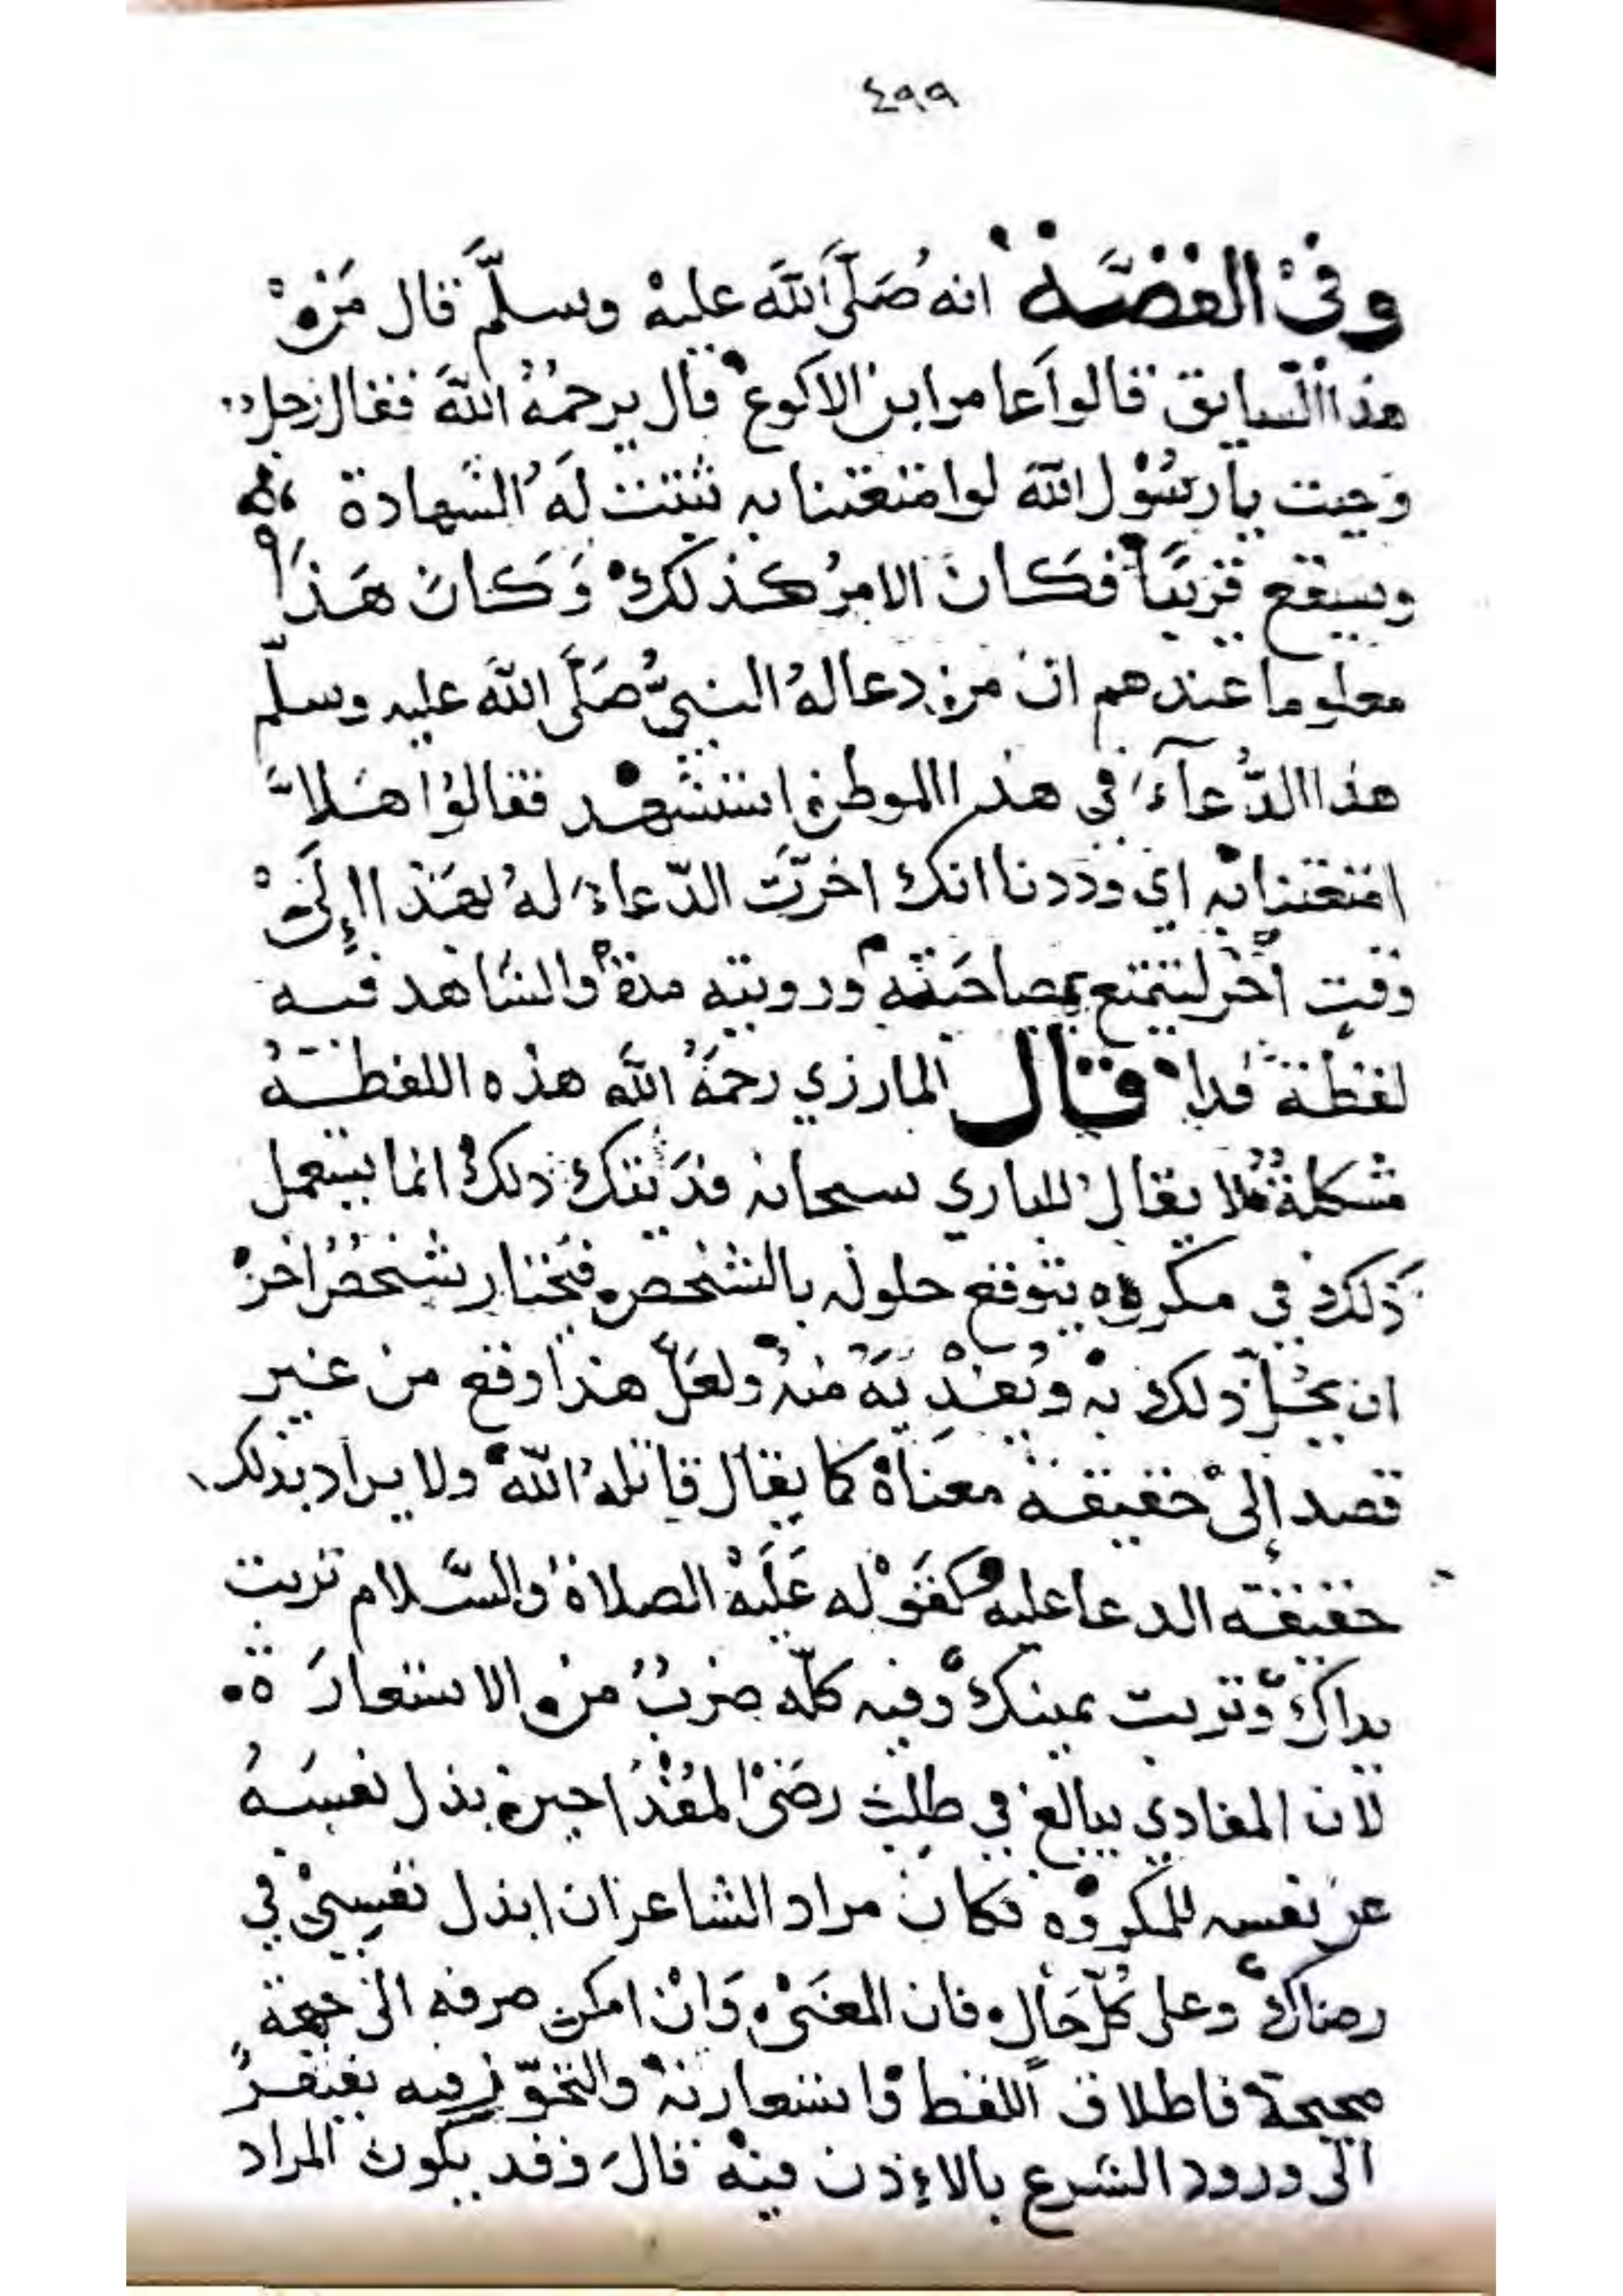 ٤٩٩
وفي القصّة انه صَلَّى اللّٰه عليه وسلّم قال مَنْ
هذا السّايق قالوا عامر ابن الاكوع قال يرحمهُ اللّٰه فقال رجل
وجبت يا رسُوْل اللّٰه لو امتعتنا به ثبتت لَهُ الشهادة
وسيقع قريبًا فكان الامرُ كذلك وَكان هَذا
معلوما عندهم ان من دعا لهُ النبيُّ صَلَّى اللّٰه عليه وسلّم
هذا الدُّعآءَ في هذا الموطن استشهد فقالوُا هَلاَّ
امتعتنا به اي وددنا انك اخرّتَ الدّعاءَ لهُ بهَذا اِلَى
وقتٍ آخر لنتمتع بمصاحبته ورويته مدة والشاهد فيه
لفظة فدا قال المازري رحمَهُ اللّٰه هذه اللفظةُ
مشكلة فلا يقال للباري سبحانه فدَيتك ذلك انما يستعمل
ذلك في مكروه يتوقع حلوله بالشخص فيختار شخصُ اخر
ان يحُلّ ذلك به ويَفْديَهُ منه ولعَلّ هذا وقع من غير
قصد إلى حقيقة معناهُ كما يقال قاتلهُ اللّٰه ولا يراد بذلك
حقيقة الدعا عليه كقَوْله عَلَيْه الصلاة والسَّلام تربت
يداك وتربت يمينك وفيه كلّه ضربُ من الاستعارَة
لان المفادي يبالغ في طلب رضَى المُفْدا حين بذل نفسَهُ
عن نفسه للمكروه فكان مراد الشاعر ان ابذل نفسِيْ في
رضاك وعلى كُلّ حَال فان المعنَى وَانْ امكن صرفه الى جهة
صحيحة فاطلاق اللفظ واستعارته والتجوّز فيه يفتقر
الى ورود الشرع بالاِذن فيه قال وقد يكون المراد